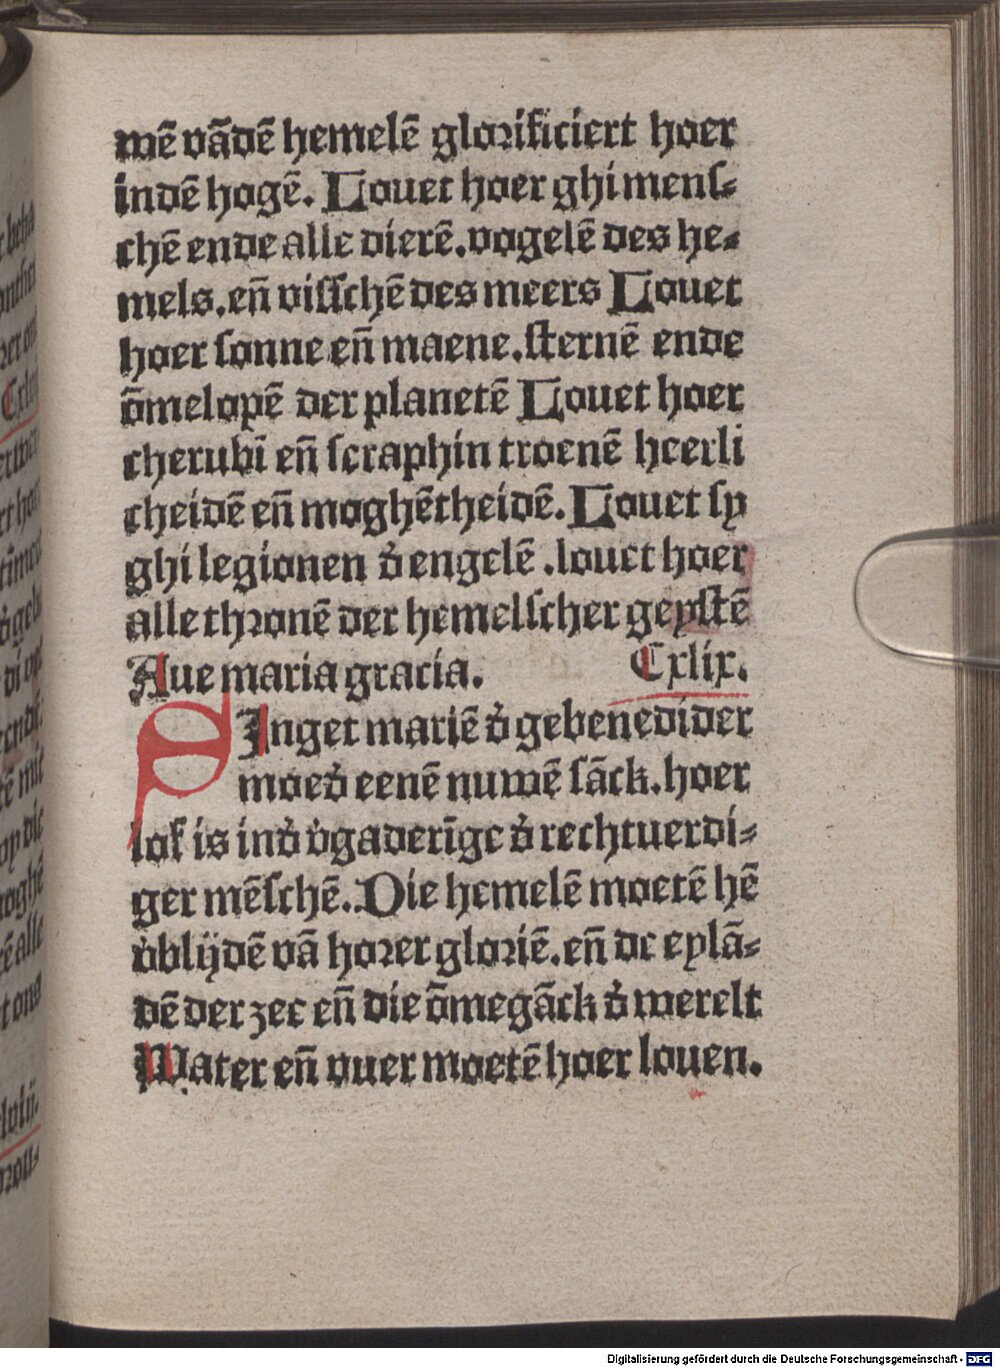 wē vādē hemelē glorificiert hoer
indē hogē. Louet hoer ghi mens⸗
chē ende alle dierē. vogelē des he⸗
mels. eñ visschē des meers Louet
hoer sonne eñ maene. sternē ende
ōmelopē der planetē Louet hoer
cherubī eñ seraphin troenē heerli
cheidē eñ moghētheidē. Louet sy
ghi legionen d̕ engelē . louet hoer
alle thronē der hemelscher geystē
Aue maria gracia. Cxlix.
SInget mariē d̕ gebenedider
moed̕ eenē nuwē sāck. hoer
lof is ind̕ v̕gaderīge d̕ rechtuerdi⸗
ger mēschē. Die hemelē moetē hē
v̕blijdē vā horer gloriē. eñ de eylā⸗
dē der zee eñ die ōmegāck d̕ werelt
Water eñ vuer moetē hoer louen.
Digitalisierung gefördert durch die Deutsche Forschungsgemeinschaft - DFG